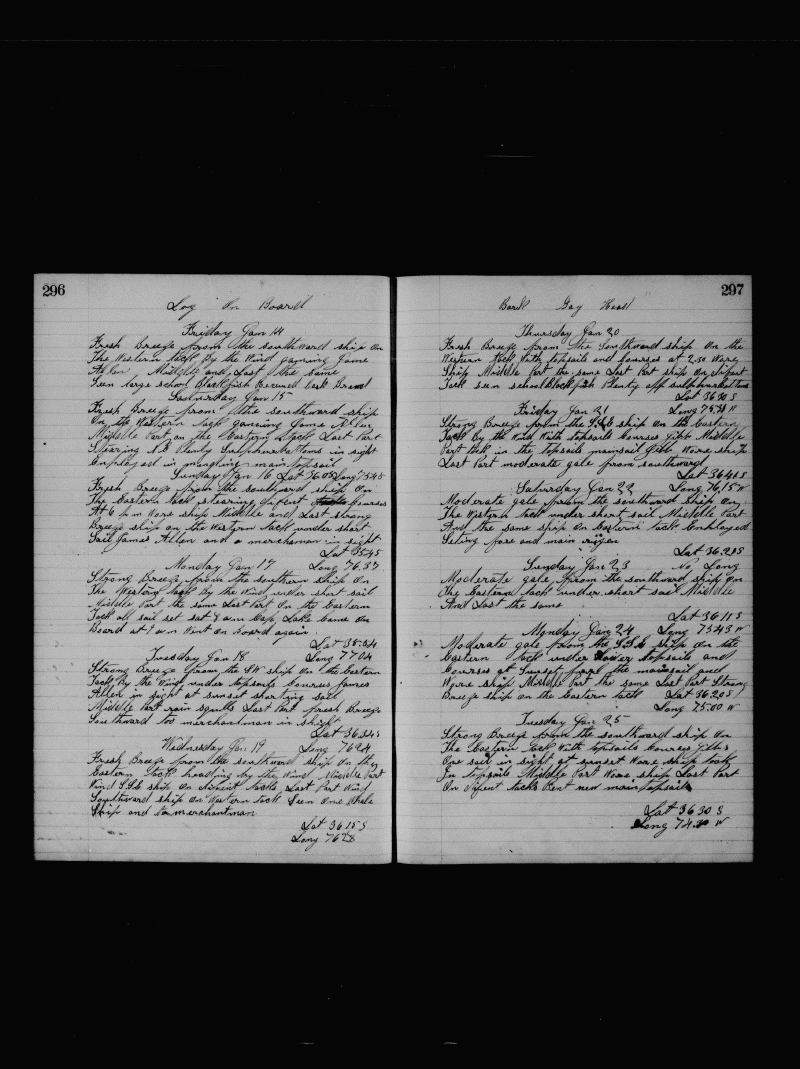 296
Log On Board
Friday Jan 14
Fresh Breeze from the southward ship on
The Western tack by the Wind gamming Jame
Allen Middle and Last the same
Seen large school Blackfish
Saturday Jan 15
Fresh Breeze from the southward ship
On the Western tack gamming Jame Allen
Middle Part on the Eastern tack Last Part
Stearing N.E Plenty Sulphurbottoms in sight
Employed in main topsail
Sunday Jan 16 Lat 36.05 Long 75.45
Fresh Breeze from the southard ship On
The Eastern tack stearing difent Courses
At 6 p m Wore ship Middle and Last strong
Breeze ship on the Western tack under short
Sail James Allen and a merchaman in sight
Lat 35.45
Monday Jan 17 Long 76.37
Strong Breeze from the southern ship On
The Western tack by the Wind under short sail
Middle Part the same Last Part On the Eastern
Tack all sail set at 8 a m Cap Lake Came on
Board at Went on board again
Lat 35.54
Tuesday Jan 18 Long 77.04
Strong Breeze from the SW ship On the Eastern
Tack By the Wind under topsails Courses James
Allen in sight at sunset shorting sail
Middle Part rain squlls Last Part fresh Breeze
Southward two merchantman in sight
Lat 36.34 S
Wednesday Jan 19 Long 76.24
Fresh Breeze from the southward ship On the
Eastern tack heading by the Wind Middle Part
Wind S.S.E ship on difent tacks Last Part Wind
Southward ship on Western tack Seen One Whale
Ship and merchantman
Lat 36 15 S
Long 76 28
297
Bark Gay Head
Thursday Jan 20
Fresh Breeze from the Southward ship On the
Western tack With topsails and courses at 2.30 Ware
Ship Middle Part the same Last Part ship On difent
Tack seen school Blackfish Plenty off sulphurbottoms
Lat 36 30 S
Friday Jan 21 Long 75.31 W
Strong Breeze from the S.S.E ship on the Eastern
Tack By the Wind With topsails Courses Gibs Middle
Part the in the topsails mainsail Gibs Wore ship
Last Part moderate gale from southward
Lat 36 40 S
Saturday Jan 22 Long 76.15 W
Moderate gale from the southward Ship On
The Western tack under short sail Middle Part
And the same ship On Eastern tack Employed
Seting fore and main riggen
Lat 36.20 S
Sunday Jan 23 No Long
Moderate gale from the southward ship On
The Eastern tack under short sail Middle
And Last the same
Lat 36 11 S
Monday Jan 24 Long 75.43 W
Moderate gale from the S.S.E ship On the
Eastern tack under topsails and
Courses at Sunset furl the mainsail and
Wore ship Middle Part the same Last Part Strong
Breeze ship on the Eastern tack Lat 36.20 S
Long 75.00 W
Tuesday Jan 25
Strong Breeze from the southward ship On
The Eastern tack With topsails Courses Gibs
One sail in sight at sunset Wore ship took
In topsails Middle Part Wore ship Last Part
On difent tacks Bent new main topsail
Lat 36 30 S
Long 74. W